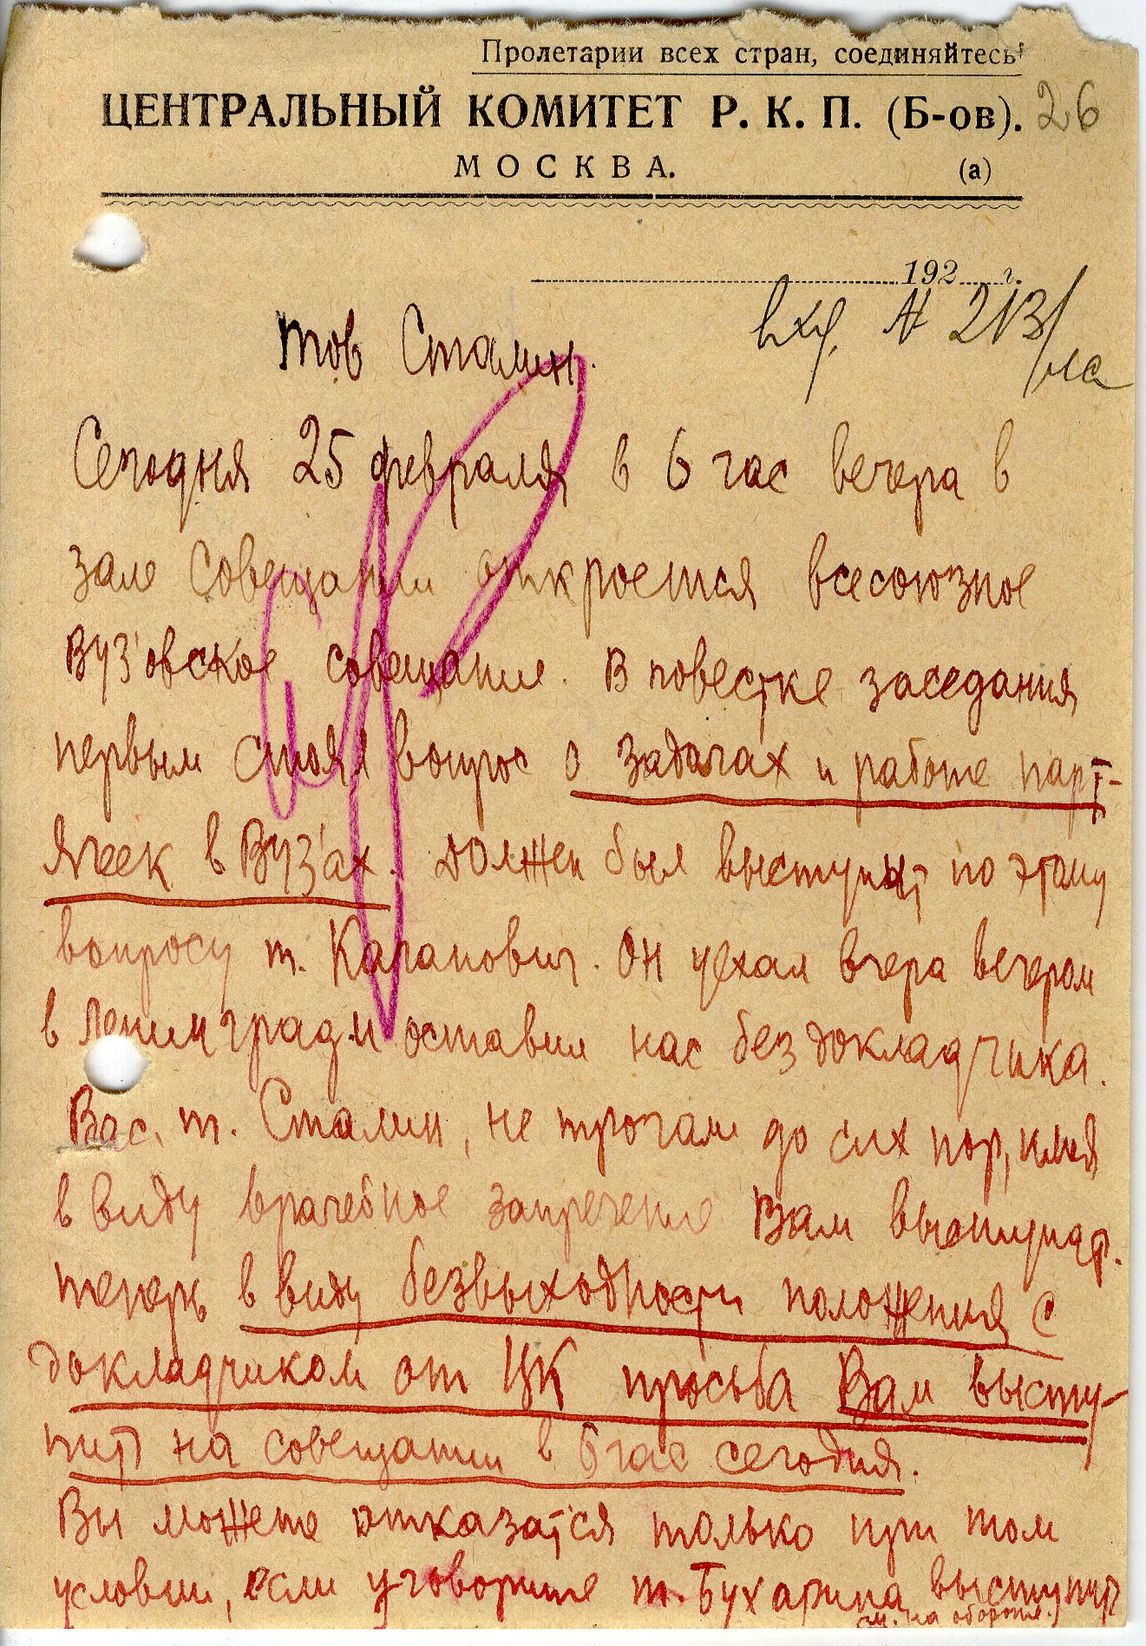 Пролетарии всех стран, соединяйтесь!
ЦЕНТРАЛЬНЫЙ КОМИТЕТ Р. К. П. (Б-ов). 26
МОСКВА. (а)
192 г.
вхд. № 213/лс
Тов Сталин.
Сегодня 25 февраля в 6 час вечера в
зале совещании откроется всесоюзное
Вуз'овское совещание. В повестке заседания
первым стоял вопрос о задачах и работе парт-
ячеек в Вуз'ах. Должен был выступат по этому
вопросу т. Каганович. Он уехал вчера вечером
в Ленинград и оставил нас без докладчика.
Вас, т. Сталин, не трогали до сих пор, имея
в виду врачебное запречение Вам выступат.
теперь в виду безвыходности положения с
докладчиком от ЦК просьба Вам высту-
пит на совещании в 6 час сегодня.
Вы можете отказатся только при том
условии, если уговорите т. Бухарина выступит
(см. на обороте.)